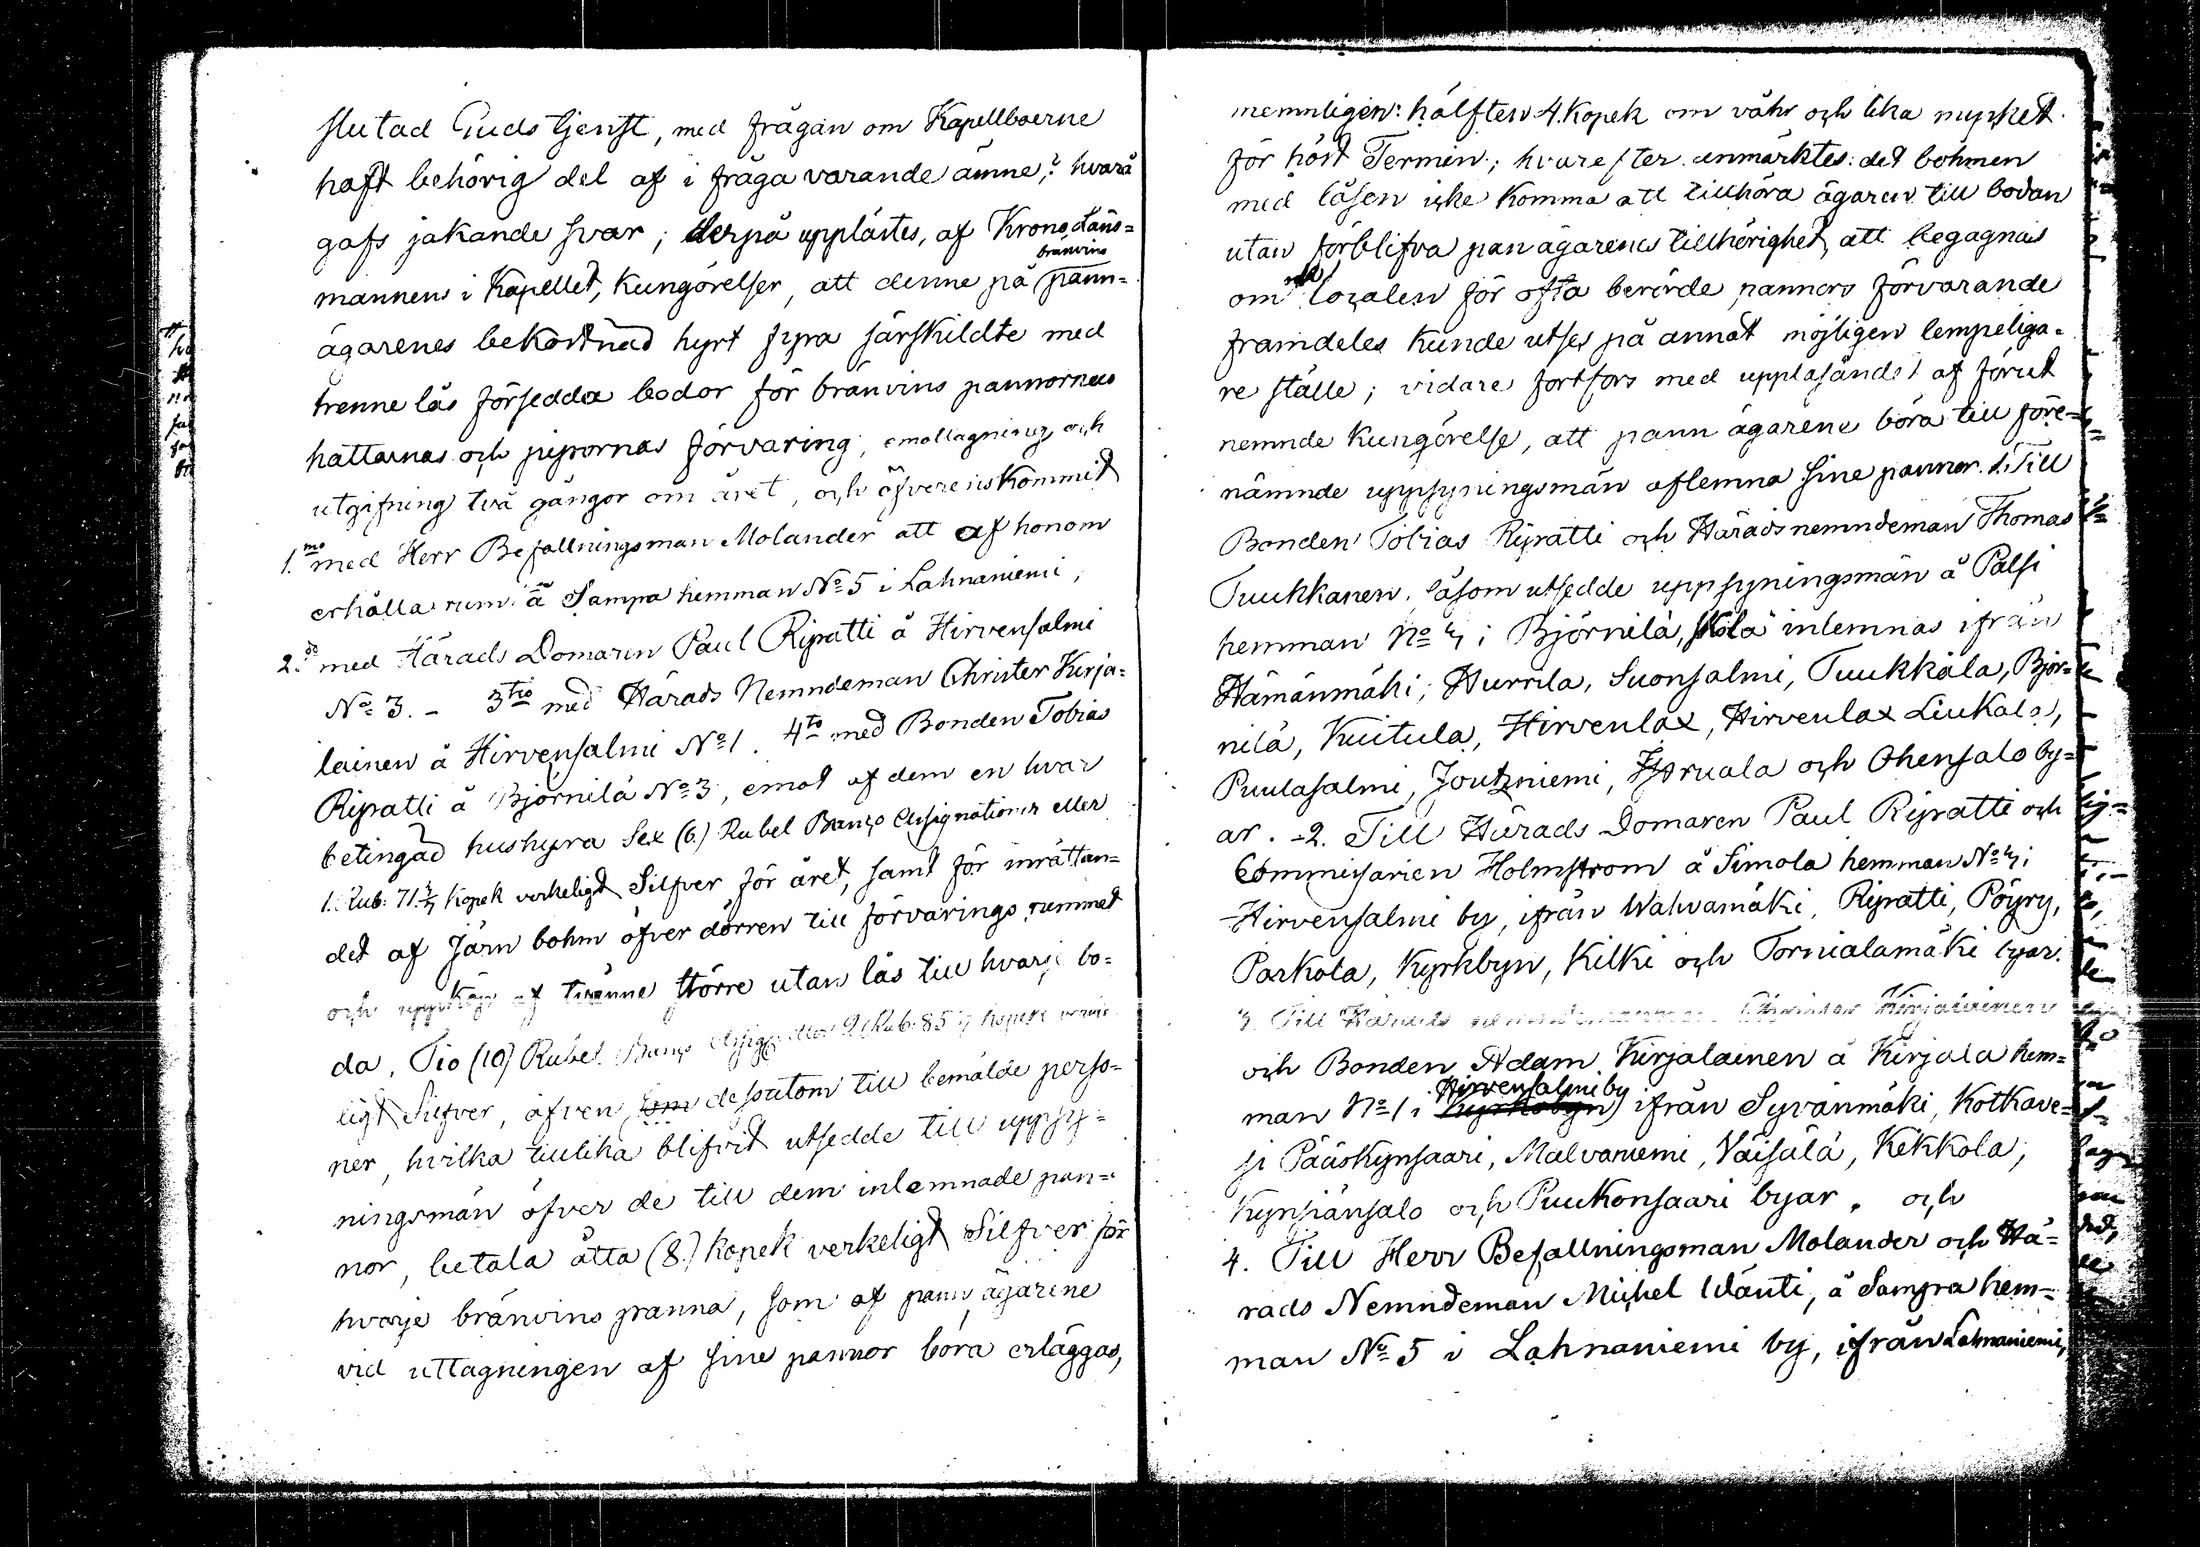 slutad Gudstjenst, med frågan om Kapellboerne
haft behörig del af i fråga varande ämne? hvarå
gafs jakande svar; derpå upplästes, af Krono Läns=
mannens i Kapellet, Kungörelser, att denne på bränvins pann=
ägarenes bekostnad hyrt fyra särskildte med
trenne lås försedda bodor för bränvins pannornas
hattarnas och pipornas förvaring, emottagning och
utgifning två gångor om året, och öfverenskommit
1.mo med Herr Befallningsman Molander att af honom
erhålla rum å Sampa hemman No 5 i Lahnaniemi,
2.do med Härads Domaren Paul Ripatti å Hirvensalmi
No 3. – 3tio med Härads Nemndeman Christer Kirja=
lainen å Hirvensalmi No 1. 4to med Bonden Tobias
Ripatti å Björnilä No 3, emot af dem en hvar
betingad hushyra Sex (6.) Rubel Banco Assignationer eller
1. Rub: 71 3/7 Kopek verkeligt Silfver för året, samt för inrättan=
det af Järn bohm öfver dörren till förvarings rummet
och uppköp af tvänne större utan lås till hvarje bo=
da, Tio (10) Rubel Banco Assig. eller 2 Rub. 85 kopek verke
ligt Silfver, äfven som dessutom till bemälde perso=
ner, hvilka tillika blifvit utsedde till uppsy=
ningsmän öfver de till dem inlemnade pan=
nor, betala åtta (8.) kopek verkeligt Silfver för
hvarje bränvins panna, som af pann ägarene
vid uttagningen af sine pannor böra erläggas,
nemnligen: hälften 4. Kopek om våhr och lika mycket
för höst Termin; hvarefter anmärktes: det bohmen
med låsen icke komma att tillhöra ägaren till bodan
utan förblifva pan ägarenes tillhörighet, att begagnas
om localen för ofta berörde pannors förvarande
framdeles kunde utses på annat möjligen lempeliga=
re ställe; vidare fortfors med upplasandet af förut
nemnde Kungörelse, att pann ägarene böra till före=
nämnde uppsyningsmän aflemna sine pannor. 1. Till
Bonden Tobias Ripatti och Härads nemndeman Thomas
Tuukkanen, såsom utsedde uppsyningsmän å Palsi
hemman No 4 i Björnilä, inlemnas ifrån
Hämänmäki, Hurrila, Suonsalmi, Tuukkala, Björ=
nilä, Kuitula, Hirvenlax, Hirvenlax Liukala,
Puulasalmi, Joutzniemi, och Ohensalo by=
ar. – 2. Till Härads Domaren Paul Ripatti och
Commisarien Holmstrom å Simola hemman No 4 i
Hirvensalmi by, ifrån Wahvamäki, Ripatti, Pöyry,
Parkola, Kyrkbyn, Kilki och Tornialamäki byar.
3. Till Härads nemndemannen Christer Kirjalainen
och Bonden Adam Kirjalainen å Kirjala hem=
man No 1 i Kyrkobyn Hirvensalmi by ifrån Syvänmäki, Kotkave=
si Pääskynsaari, Malvaniemi, Väisälä, Kekkola,
Kynsiänsalo och Puukonsaari byar. och
4. Till Herr Befallningsman Molander och Hä=
rads Nemndeman Michel Wänti, å Sampa hem=
man No 5 i Lahnaniemi by, ifrån Lahnaniemi,